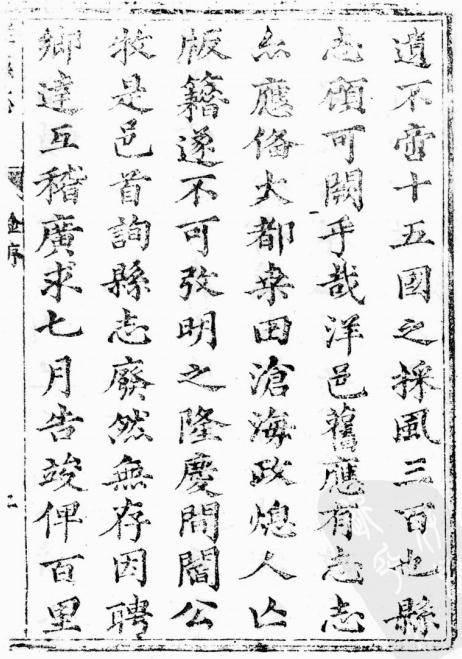 遒不啻十五國之採風三百也縣
志顧可闕乎哉洋邑舊應有志志
亦應俻大都桒田滄海政熄人亡
版籍遂不可攷明之隆慶間閻公
牧是邑首詢縣志廢然無存因聘
鄉達互稽廣求七月告竣俾百里
序